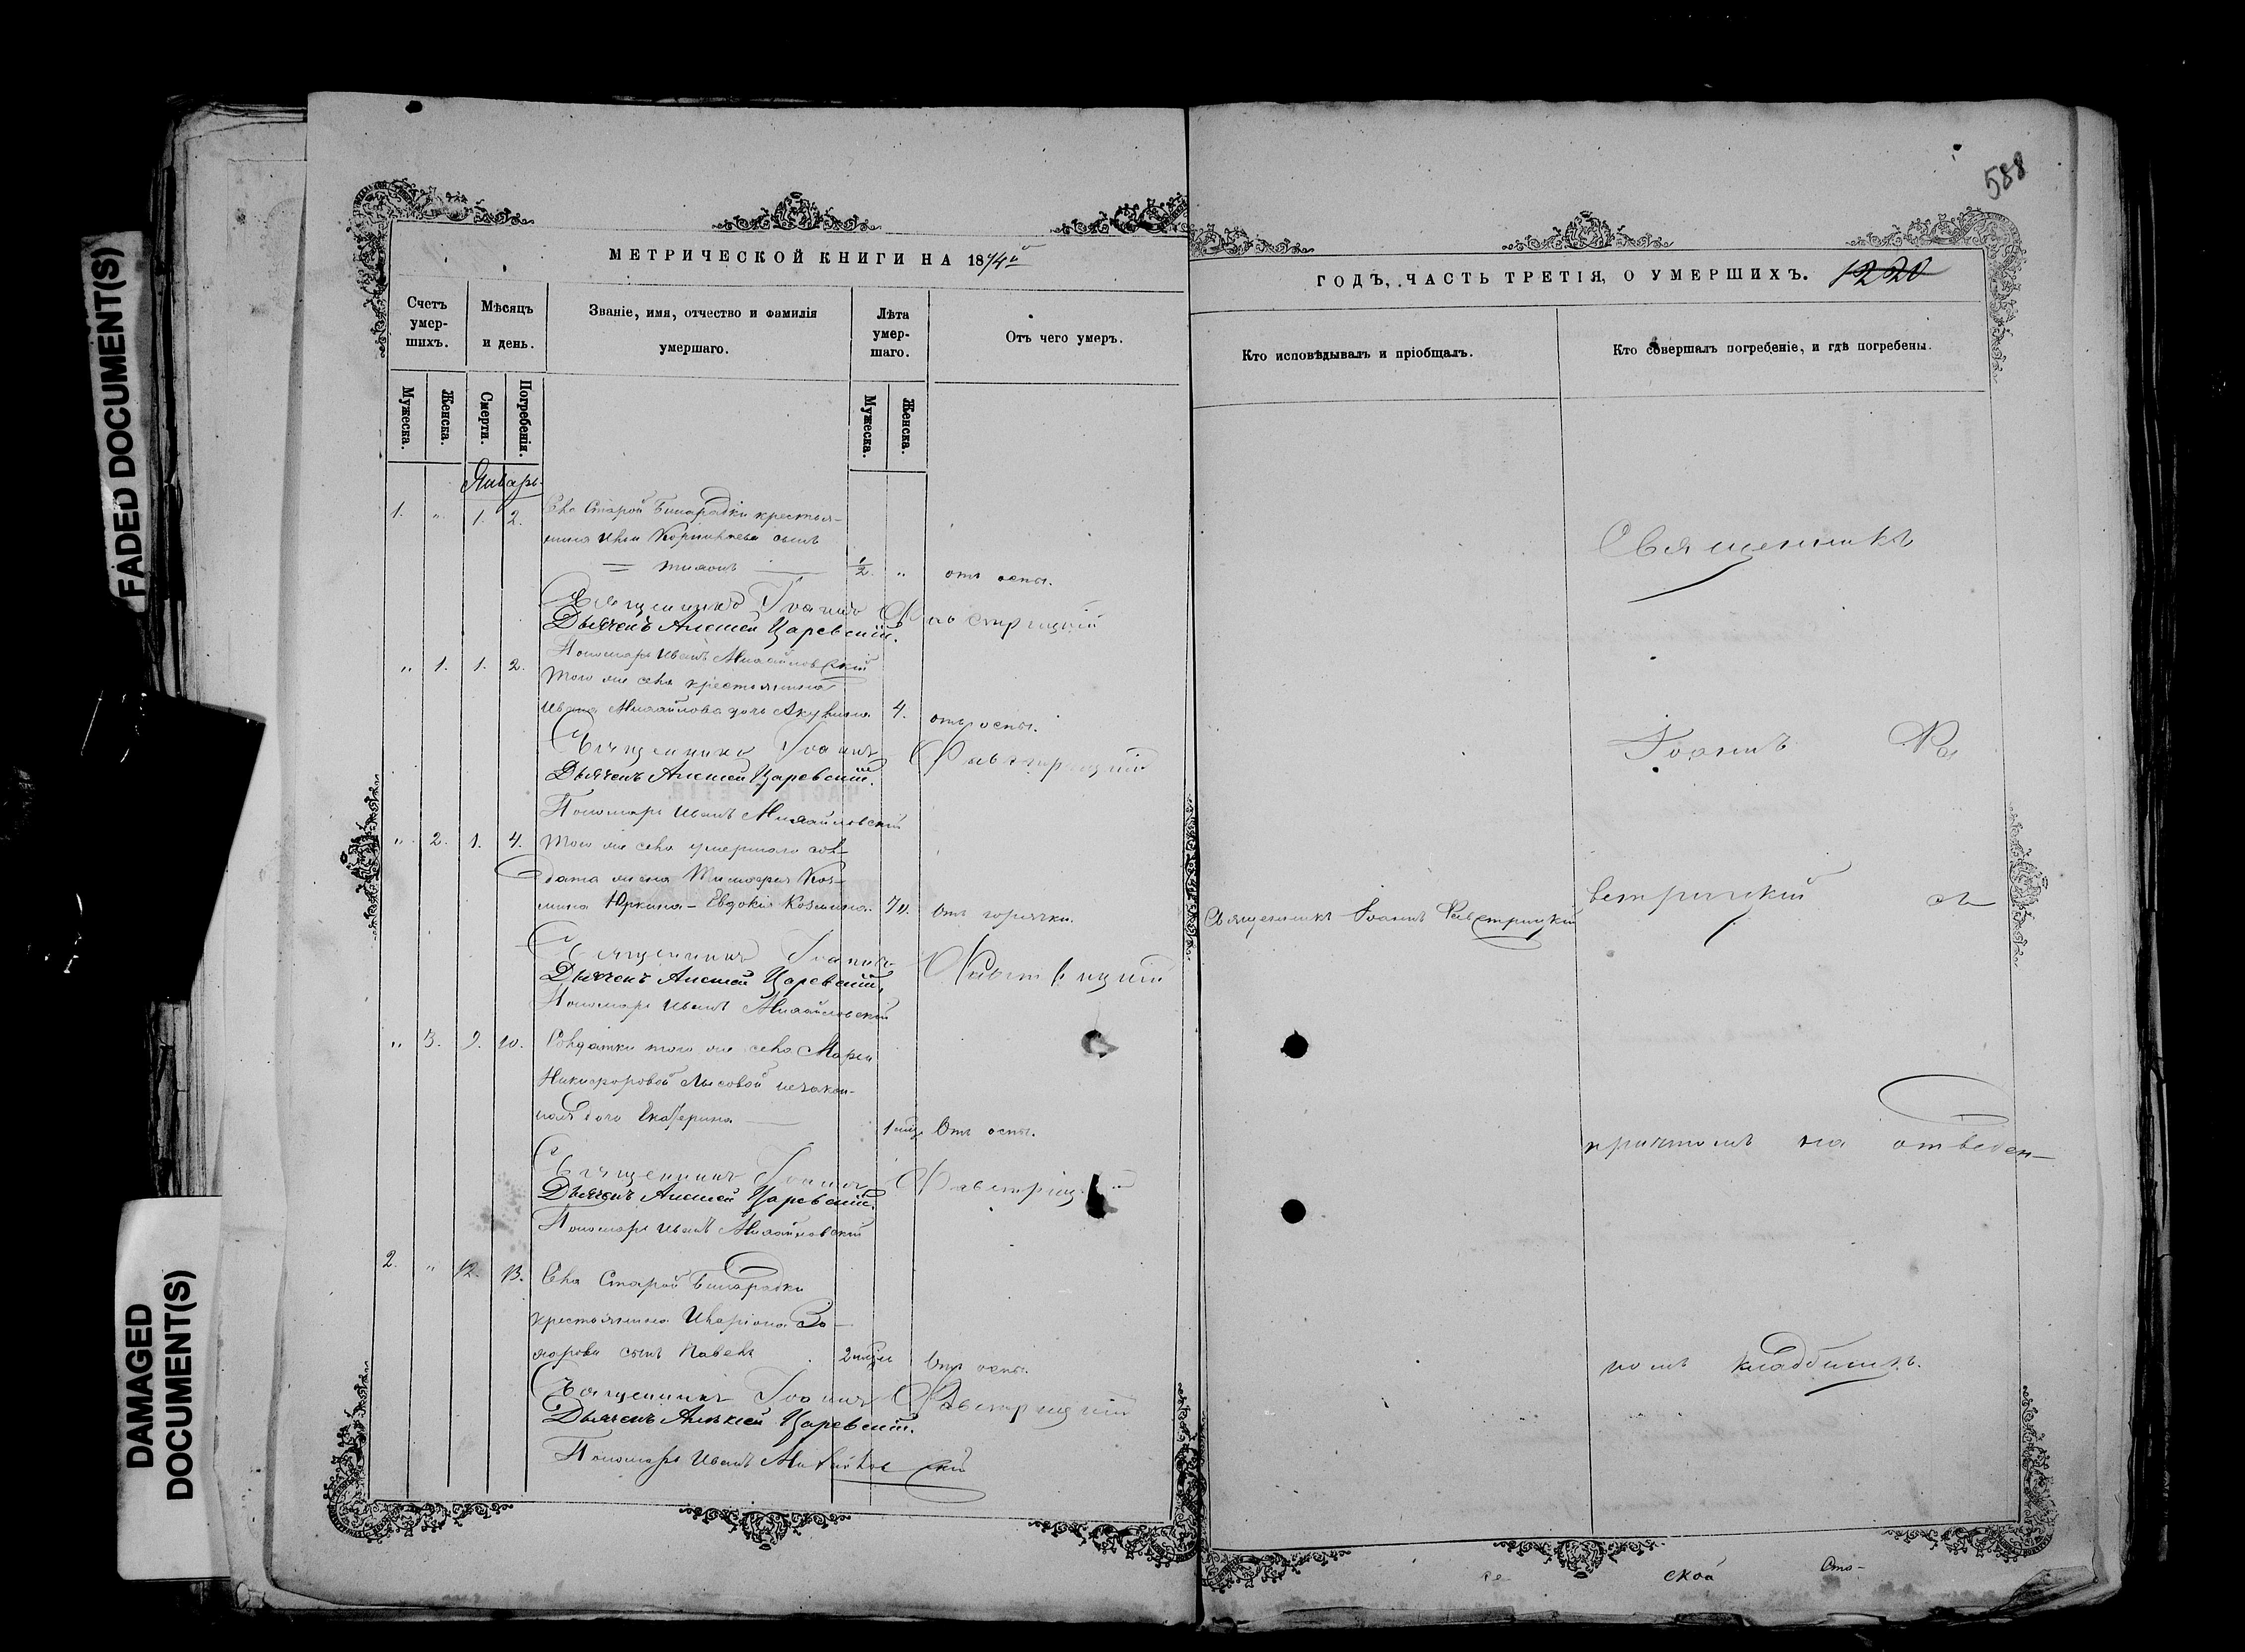 FADED DOCUMENT(S)
DAMAGED
DOCUMENT(S)
588
МЕТРИЧЕСКОЙ КНИГИ НА 1874й
Счетъ умер-шихъ.
Мѣсяцъ и день.
Званіе, имя, отчество и фамилія умершаго.
Лѣта умер-шаго.
Отъ чего умеръ.
Мужеска.
Женска.
Смерти.
Погребенія.
Мужеска.
Женска.
Январь
1. „ 1. 2. Села Старой Бинарадки крестья-
нина сынъ
1/2. „ отъ оспы.
Священникъ Іоаннъ Фавстрицкій
Дьячекъ Алексей Царевскій.
Пономарь Иванъ Михайловскій
„ 1. 1. 2. Того же села крестьянина
Ивана Михайлова дочь Акулина 4. отъ оспы.
Священникъ Іоаннъ Фавстрицкій
Дьячекъ Алексей Царевскій.
Пономарь Иванъ Михайловскій
„ 2. 1. 4. Того же села умершаго сол-
дата жена Тимофея Коз-
мина Юркина – Евдокія Козмина. 70. Отъ горячки.
Священникъ Іоаннъ Фавстрицкій
Дьячекъ Алексей Царевскій.
Пономарь Иванъ Михайловскій
„ 3. 9. 10. Солдатки того же села Марьи
Никифоровой Лысовой незакон-
ная дочь Екатерина 1 мѣс. Отъ оспы.
Священникъ Іоаннъ Фавстрицкій
Дьячекъ Алексей Царевскій.
Пономарь Иванъ Михайловскій
2. „ 12. 13. Села Старой Бинарадки
крестьянина Иларіона За-
харова сынъ Павелъ 2 мѣся Отъ оспы.
Священникъ Іоаннъ Фавстрицкій
Дьячекъ Алексей Царевскій.
Пономарь Иванъ Михайловскій
ГОДЪ, ЧАСТЬ ТРЕТІЯ, О УМЕРШИХЪ. 1220
Кто исповѣдывалъ и пріобщалъ.
Кто совершалъ погребеніе, и гдѣ погребены.
Священникъ
Іоаннъ Фа
встрицкій съ
Священникъ Іоаннъ Фавстрицкій
причтомъ на отведен-
номъ кладбищѣ.
ской
Сто-